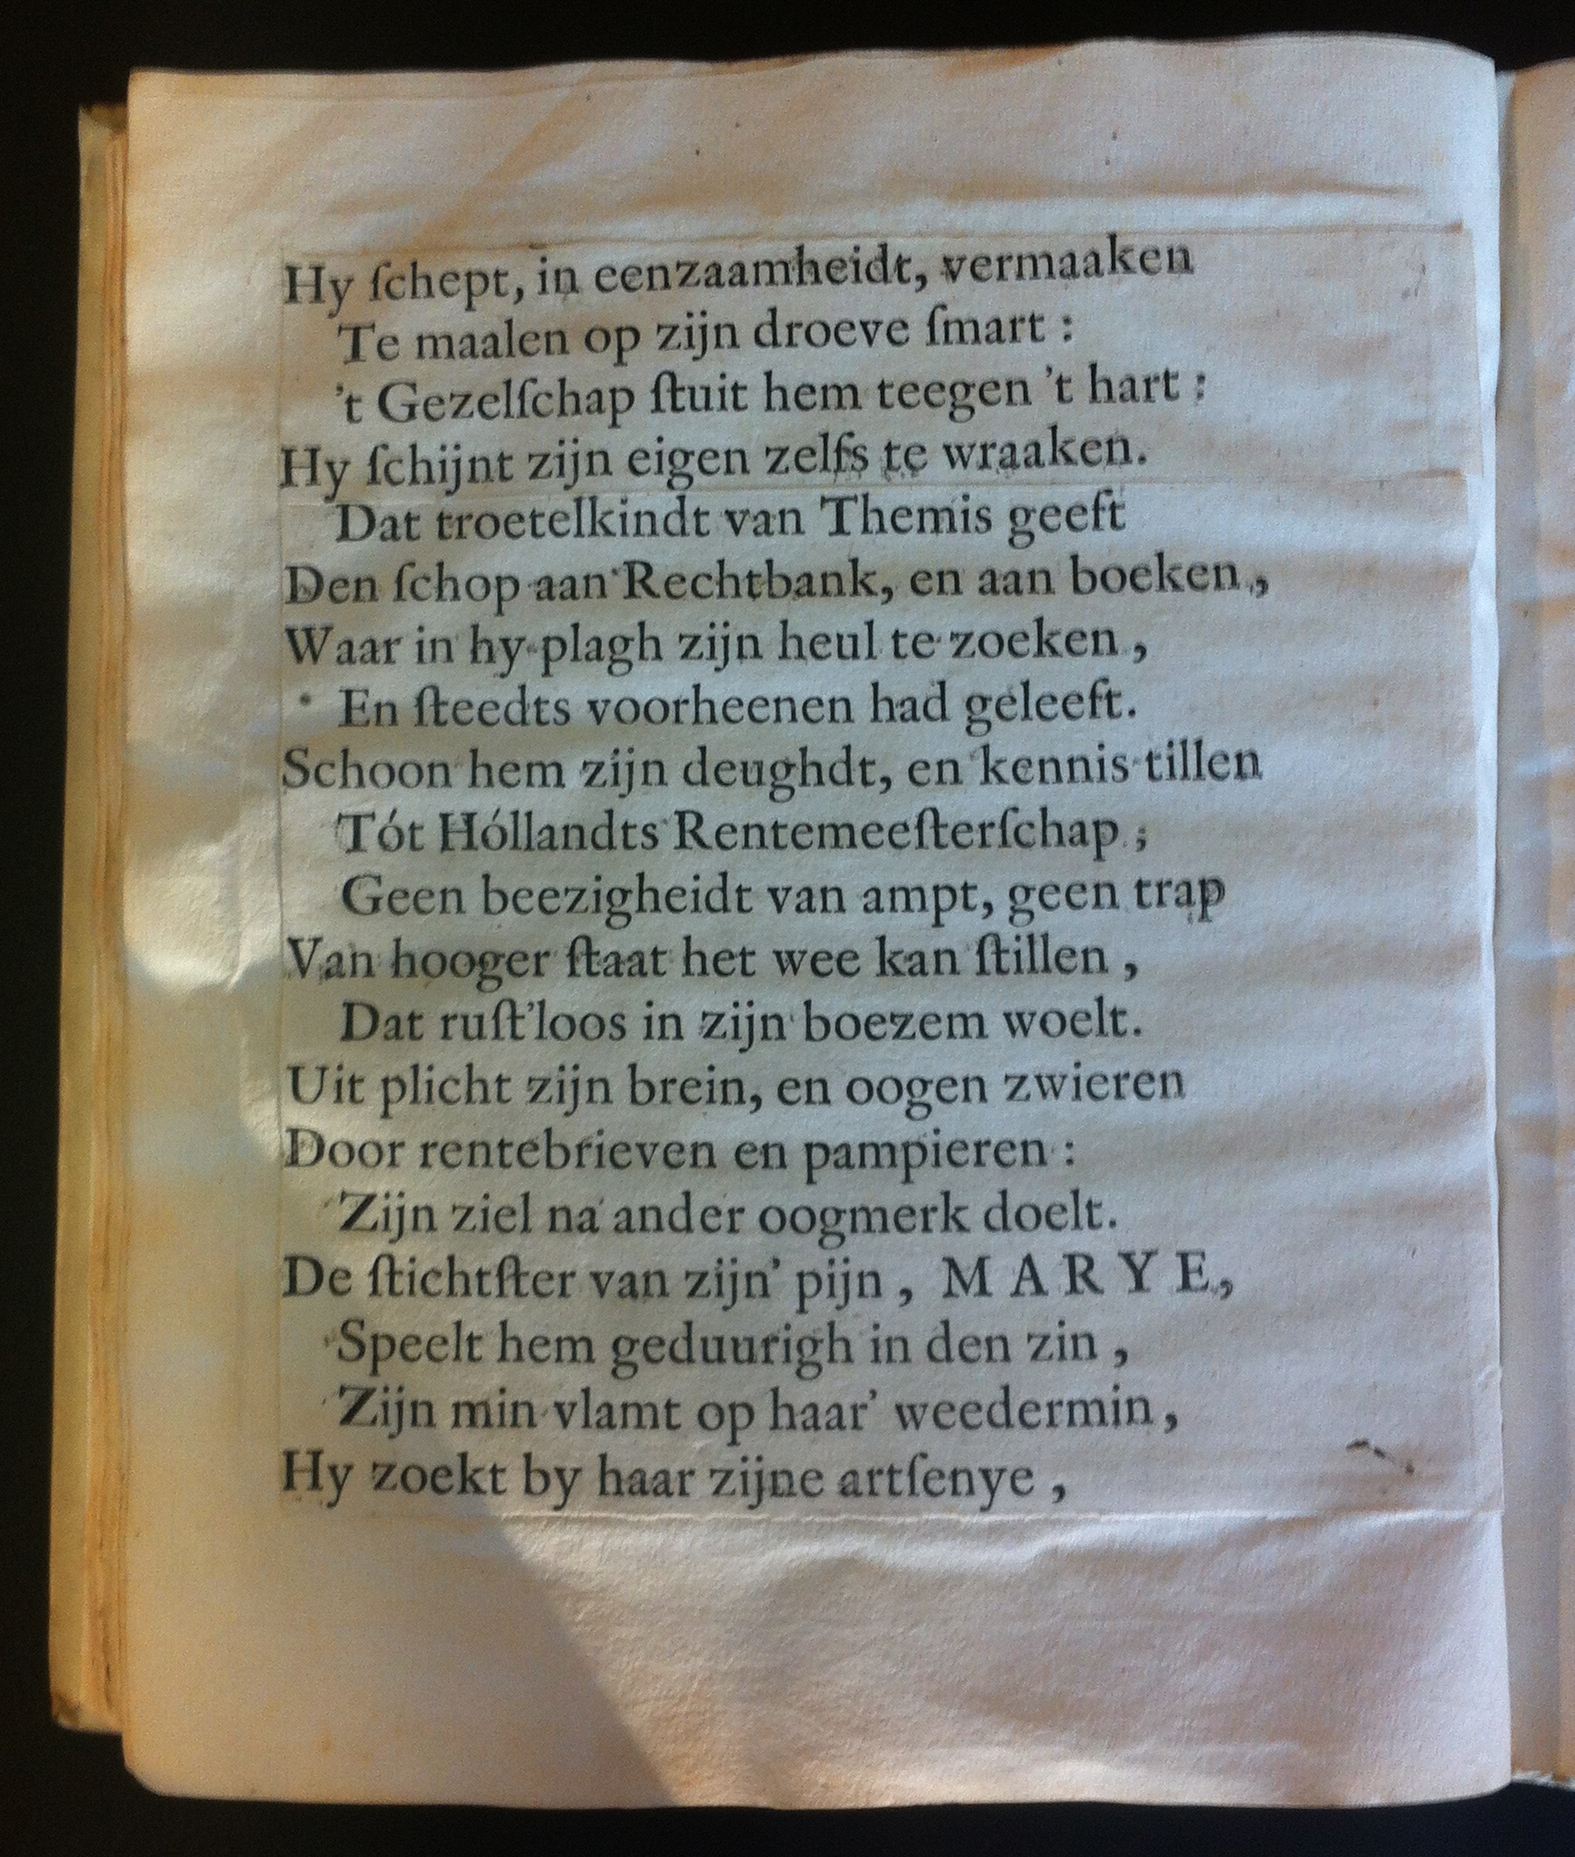 Hy ſchept, in eenzaamheidt, vermaaken
Te maalen op zijn droeve ſmart :
't Gezelſchap ſtuit hem teegen 't hart :
Hy ſchijnt zijn eigen zelfs te wraaken.
Dat troetelkindt van Themis geeft
Den ſchop aan Rechtbank, en aan boeken,
Waar in hy plagh zijn heul te zoeken,
En ſteedts voorheenen had geleeft.
Schoon hem zijn deughdt, en kennis tillen
Tót Hóllandts Rentemeeſterſchap ;
Geen beezigheidt van ampt, geen trap
Van hooger ſtaat het wee kan ſtillen,
Dat ruſt'loos in zijn boezem woelt.
Uit plicht zijn brein, en oogen zwieren
Door rentebrieven en pampieren :
Zijn ziel na ander oogmerk doelt.
De ſtichtſter van zijn' pijn, MARYE,
Speelt hem geduurigh in den zin,
Zijn min vlamt op haar' weedermin,
Hy zoekt by haar zijne artſenye,